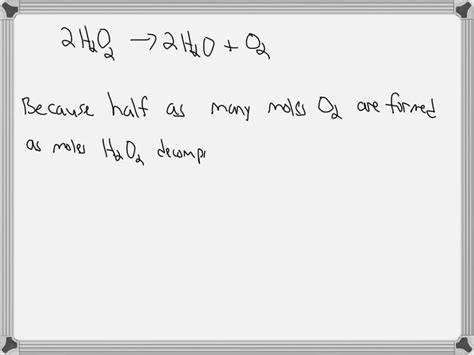 2H₂O₂ → 2H₂O + O₂
Because half as many moles O₂ are formed
as moles H₂O₂ decomp